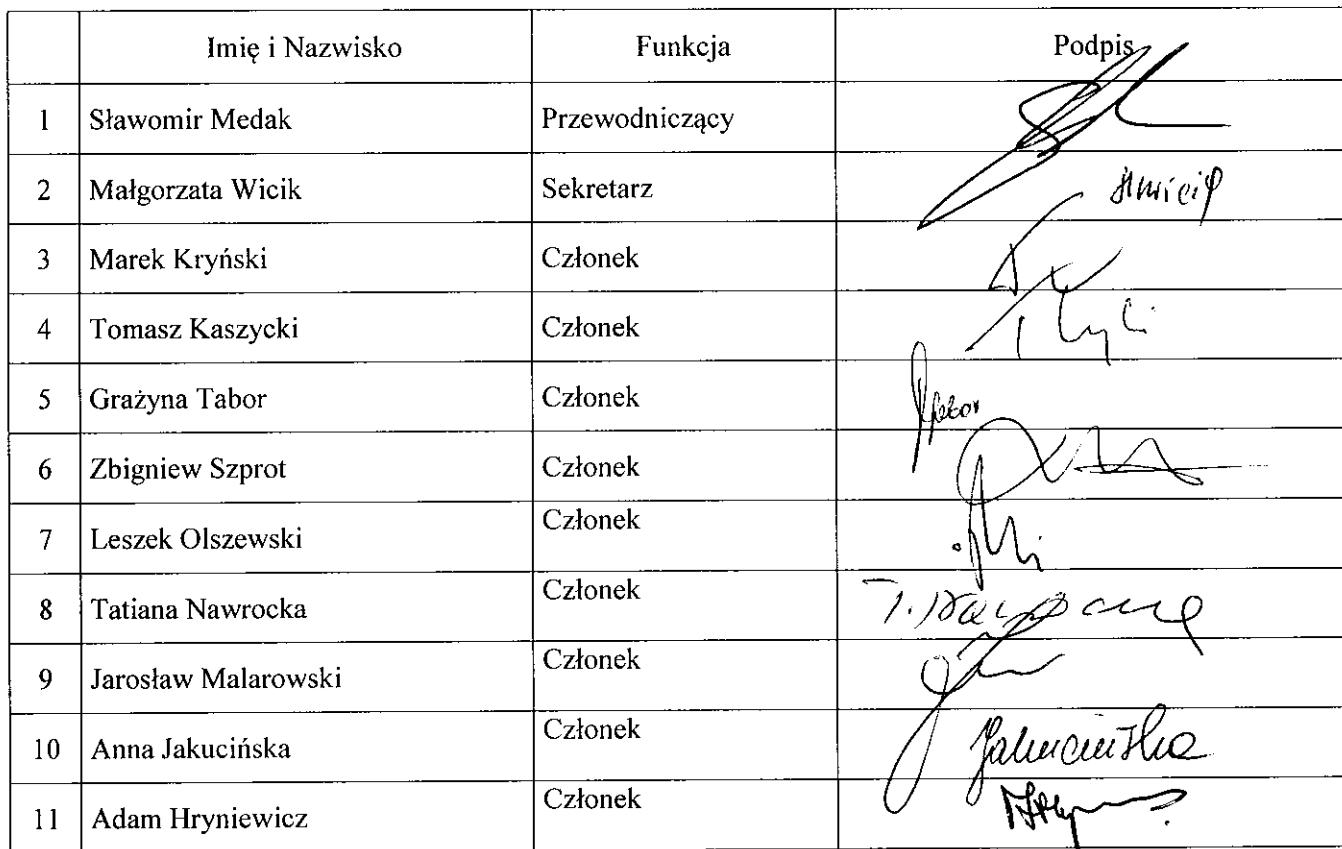 Imię i Nazwisko Funkcja Podpis
1 Sławomir Medak Przewodniczący
2 Małgorzata Wicik Sekretarz
3 Marek Kryński Członek
4 Tomasz Kaszycki Członek
5 Grażyna Tabor Członek
6 Zbigniew Szprot Członek
7 Leszek Olszewski Członek
8 Tatiana Nawrocka Członek
9 Jarosław Malarowski Członek
10 Anna Jakucińska Członek Jakucińska
11 Adam Hryniewicz Członek